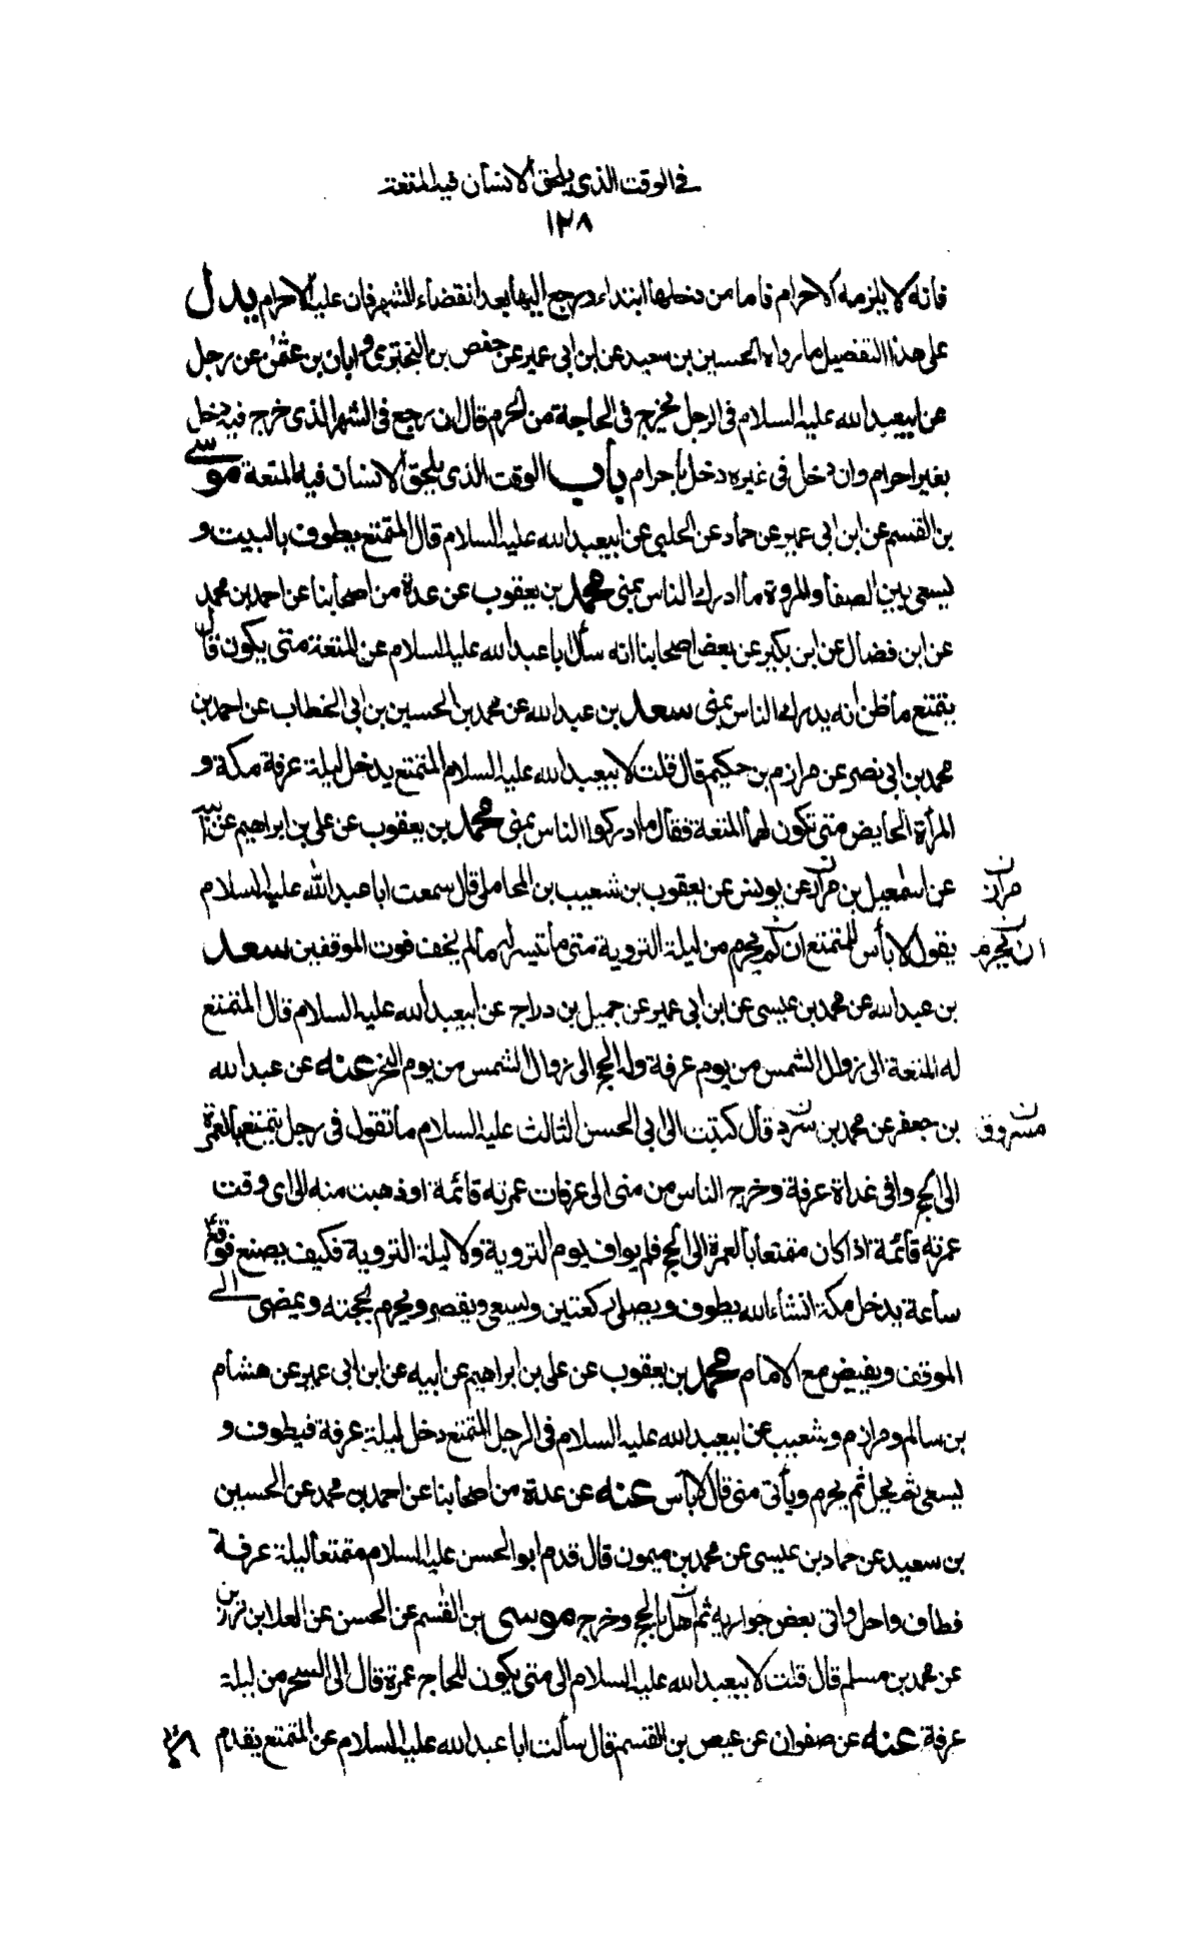 في الوقت الذي يلحق الانسان فيه المتعة
١٢٨
فانه لا يلزمه الاحرام فاما من دخلها ابتداء ورجع اليها بعد انقضاء الشهر فان عليه الاحرام يدل
على هذا التفصيل ما رواه الحسين بن سعيد عن ابن ابي عمير عن حفص بن البختري وابان بن عثمن عن رجل
عن ابيعبد الله عليه السلام في الرجل يخرج في الحاجة من الحرم قال ان رجع في الشهر الذي خرج فيه دخل
بغير احرام وان دخل في غيره دخل باحرام باب الوقت الذي يلحق الانسان فيه المتعة موسى
بن القسم عن ابن ابي عمير عن حماد عن الحلبي عن ابيعبد الله عليه السلام قال المتمتع يطوف بالبيت و
يسعى بين الصفا والمروة ما ادرك الناس بمنى محمد بن يعقوب عن عدة من اصحابنا عن احمد بن محمد
عن ابن فضال عن ابن بكير عن بعض اصحابنا انه سأل ابا عبد الله عليه السلام عن المتعة متى يكون قال
يتمتع ما ظن انه يدرك الناس بمنى سعد بن عبد الله عن محمد بن الحسين بن ابي الخطاب عن احمد بن
محمد بن ابي نصر عن مرازم بن حكيم قال قلت لابيعبد الله عليه السلام المتمتع يدخل ليلة عرفة مكة و
المرأة الحايض متى تكون لها المتعة فقال ما ادركوا الناس بمنى محمد بن يعقوب عن علي بن ابراهيم عن ابيه
عن اسمعيل بن مرار عن يونس عن يعقوب بن شعيب بن المحاملي قال سمعت ابا عبد الله عليه السلام
مرار ن
يقول لا بأس للمتمتع ان لم يحرم من ليلة التروية متى ما تيسر له ما لم يخف فوت الموقفين سعد
ان يحرم ن
بن عبد الله عن محمد بن عيسى عن ابن ابي عمير عن جميل بن دراج عن ابيعبد الله عليه السلام قال المتمتع
له المتعة الى زوال الشمس من يوم عرفة وله الحج الى زوال الشمس من يوم النحر عنه عن عبد الله
بن جعفر عن محمد بن سرد قال كتبت الى ابي الحسن الثالث عليه السلام ما تقول في رجل يتمتع بالعمرة
مسروق ن
الى الحج وافى غداة عرفة وخرج الناس من منى الى عرفات عمرته قائمة او ذهبت منه الى اي وقت
عمرته قائمة اذا كان متمتعا بالعمرة الى الحج فلم يواف يوم التروية ولا ليلة التروية فكيف يصنع فوقع
ساعة يدخل مكة انشاء الله يطوف ويصلي ركعتين ويسعى ويقصر ويحرم بحجته ويمضي الى
الموقف ويفيض مع الامام محمد بن يعقوب عن علي بن ابراهيم عن ابيه عن ابن ابي عمير عن هشام
بن سالم ومرازم وشعيب عن ابيعبد الله عليه السلام في الرجل المتمتع دخل ليلة عرفة فيطوف و
يسعى ثم يحل ثم يحرم ويأتي منى قال لا بأس عنه عن عدة من اصحابنا عن احمد بن محمد عن الحسين
بن سعيد عن حماد بن عيسى عن محمد بن ميمون قال قدم ابو الحسن عليه السلام متمتعا ليلة عرفة
فطاف واحل واتى بعض جواريه ثم اهل بالحج وخرج موسى بن القسم عن الحسن عن العلا بن رزين
عن محمد بن مسلم قال قلت لابيعبد الله عليه السلام الى متى يكون للحاج عمرة قال الى السحر من ليلة
عرفة عنه عن صفوان عن عيص بن القسم قال سألت ابا عبد الله عليه السلام عن المتمتع يقدم